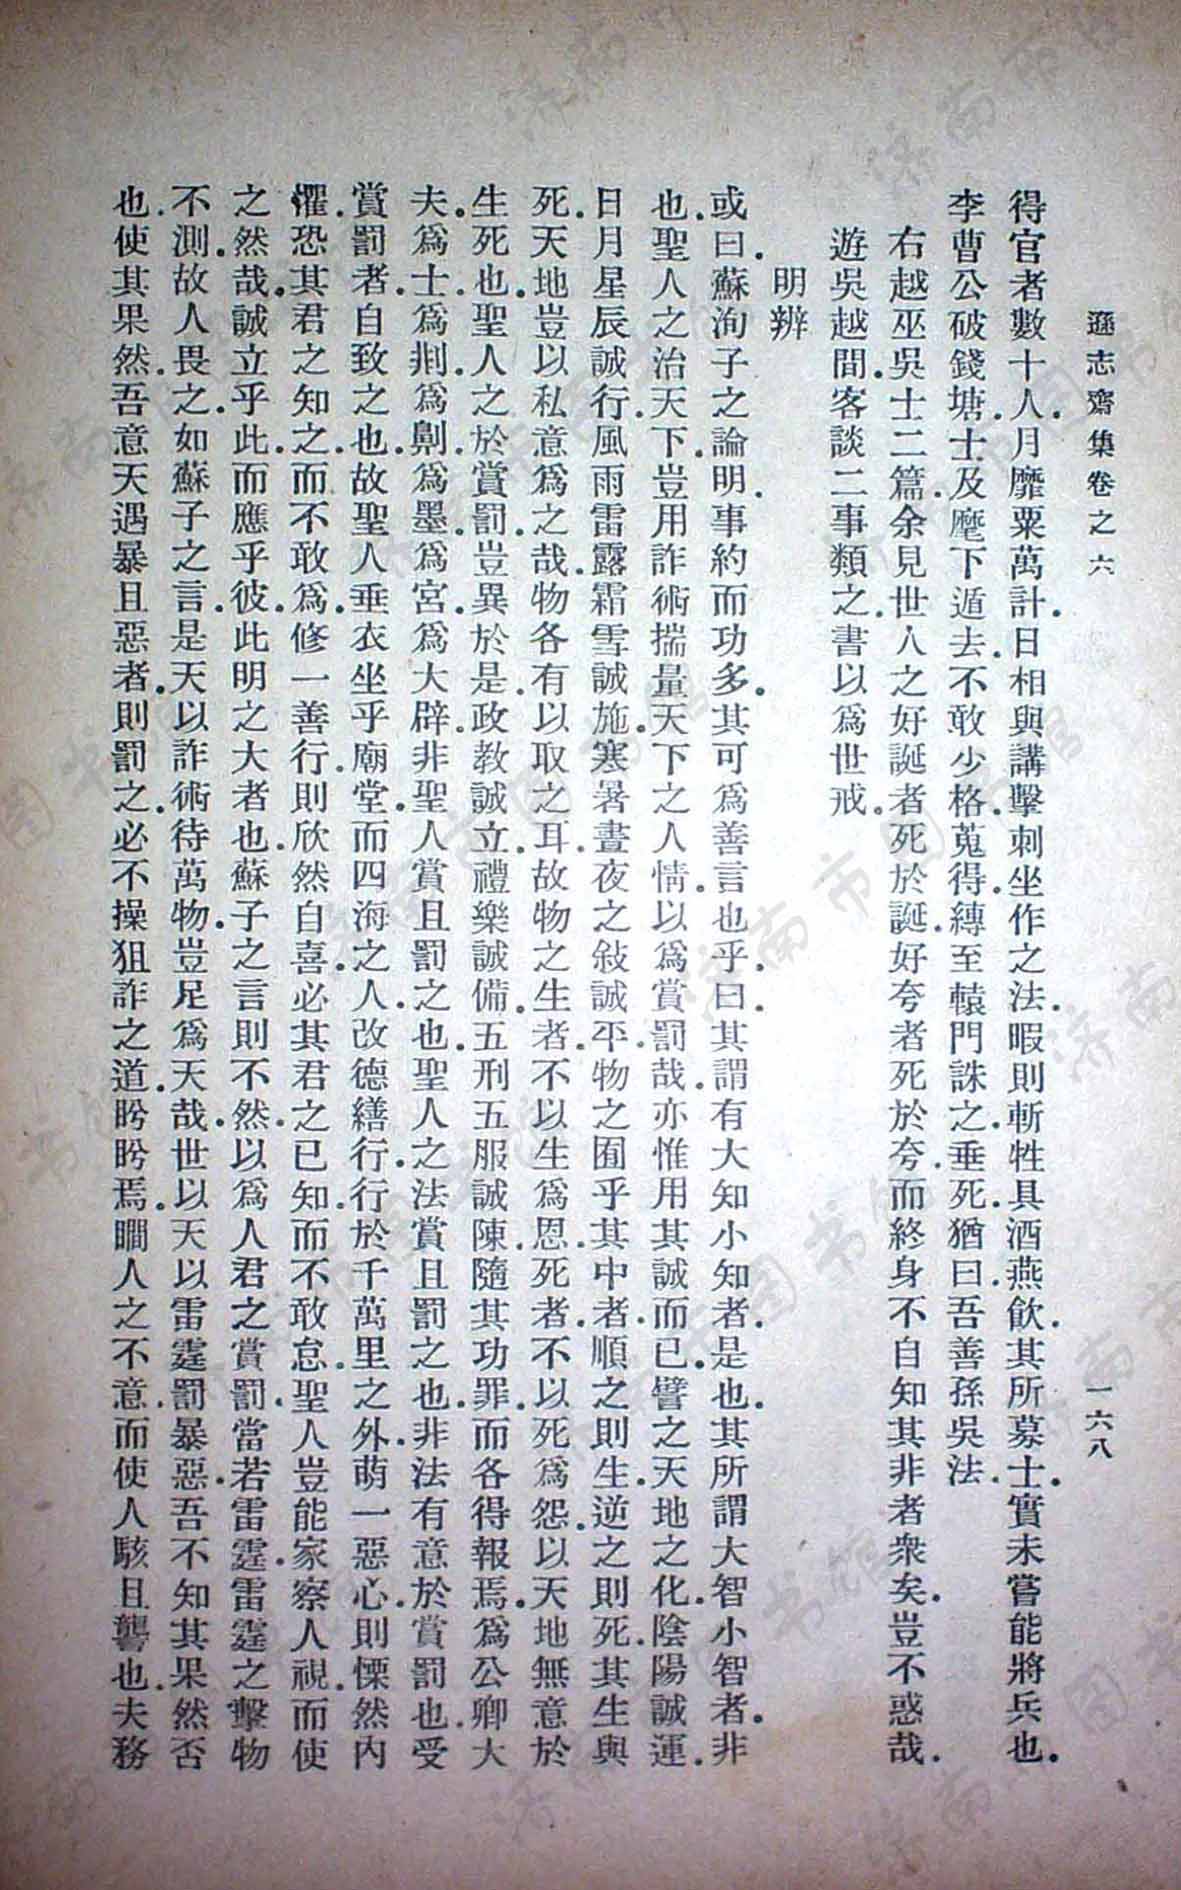 遜志齋集卷之六　一六八
得官者數十人.月靡粟萬計.日相與講擊刺坐作之法.暇則斬牲具酒燕飲.其所募士實未嘗能將兵也.
李曹公破錢塘.士及麾下遁去.不敢少格.蒐得.縛至轅門誅之.垂死.猶曰.吾善孫吳法.
右越巫吳士二篇.余見世人之好誕者死於誕.好夸者死於夸.而終身不自知其非者衆矣.豈不惑哉.
遊吳越間客談二事類之.書以爲世戒.
明辨
或曰.蘇洵子之論明.事約而功多.其可爲善言也乎.曰.其謂有大知小知者.是也.其所謂大智小智者.非
也.聖人之治天下.豈用詐術揣量天下之人情.以爲賞罰哉.亦惟用其誠而已.譬之天地之化.陰陽誠運.
日月星辰誠行.風雨雷露霜雪誠施.寒暑晝夜之敍誠平.物之囿乎其中者.順之則生.逆之則死.其生與
死.天地豈以私意爲之哉.物各有以取之耳.故物之生者.不以生爲恩.死者.不以死爲怨.以天地無意於
生死也.聖人之於賞罰.豈異於是.政教誠立.禮樂誠備.五刑五服誠陳.隨其功罪.而各得報焉.爲公卿大
夫.爲士.爲剕.爲劓.爲墨.爲宮.爲大辟.非聖人賞且罰之也.聖人之法賞且罰之也.非法有意於賞罰也.受
賞罰者.自致之也.故聖人垂衣坐乎廟堂.而四海之人.改德繕行.行於千萬里之外.萌一惡心.則慄然內
懼.恐其君之知之.而不敢爲.修一善行.則欣然自喜.必其君之已知.而不敢怠.聖人豈能家察人視.而使
之然哉.誠立乎此.而應乎彼.此明之大者也.蘇子之言則不然.以爲人君之賞罰.當若雷霆.雷霆之擊物
不測.故人畏之.如蘇子之言.是天以詐術待萬物.豈足爲天哉.世以天以雷霆罰暴惡.吾不知其果然否
也.使其果然.吾意天遇暴且惡者.則罰之.必不操狙詐之道.盻盻焉.瞯人之不意.而使人駭且讋也.夫務